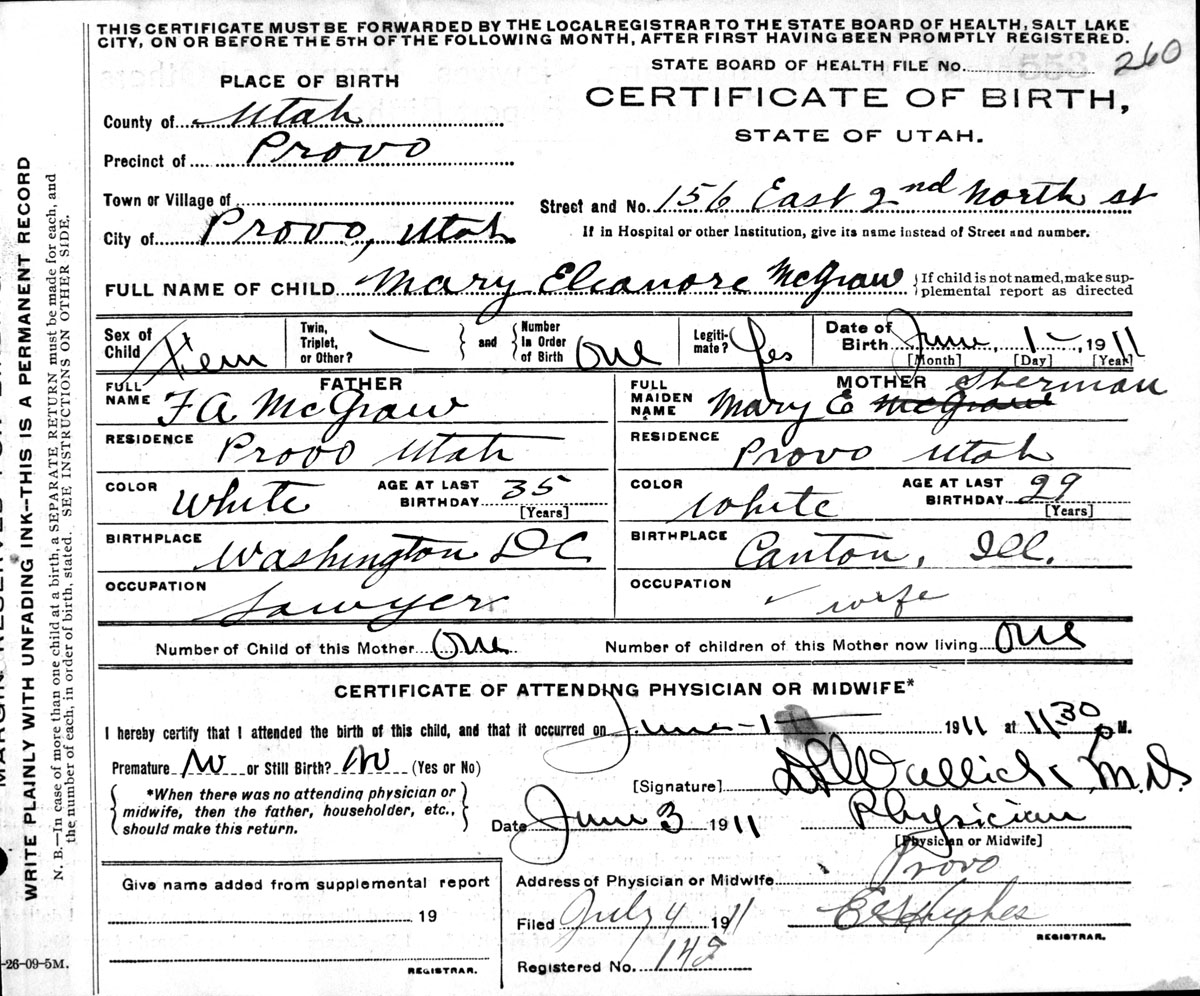 THIS CERTIFICATE MUST BE FORWARDED BY THE LOCAL REGISTRAR TO THE STATE BOARD OF HEALTH, SALT LAKE
CITY, ON OR BEFORE THE 5TH OF THE FOLLOWING MONTH, AFTER FIRST HAVING BEEN PROMPTLY REGISTERED.
STATE BOARD OF HEALTH FILE No. 260
PLACE OF BIRTH
CERTIFICATE OF BIRTH,
STATE OF UTAH.
County of Utah
Precinct of Provo
Town or Village of
Street and No. 156 East 2nd North st
City of Provo, Utah
If in Hospital or other Institution, give its name instead of Street and number.
FULL NAME OF CHILD Mary Eleanore McGraw { If child is not named, make sup-
plemental report as directed
Sex of Child Fem
Twin, Triplet, or Other?
and
Number In Order of Birth One
Legiti-mate? Yes
Date of Birth June, 1, 1911
[Month] [Day] [Year]
FATHER
FULL NAME F A McGraw
RESIDENCE Provo Utah
COLOR White
AGE AT LAST BIRTHDAY 35
[Years]
BIRTHPLACE Washington DC
OCCUPATION Lawyer
MOTHER
FULL MAIDEN NAME Mary E McGraw Sherman
RESIDENCE Provo Utah
COLOR White
AGE AT LAST BIRTHDAY 29
[Years]
BIRTHPLACE Canton, Ill.
OCCUPATION wife
Number of Child of this Mother One
Number of children of this Mother now living One
CERTIFICATE OF ATTENDING PHYSICIAN OR MIDWIFE*
I hereby certify that I attended the birth of this child, and that it occurred on June 1 1911 at 11:30 p M.
Premature No or Still Birth? No (Yes or No)
*When there was no attending physician or
midwife, then the father, householder, etc.,
should make this return.
[Signature] Wallick, M.D.
Date June 3 1911 Physician
[Physician or Midwife]
Address of Physician or Midwife Provo
Filed July 4 1911 Hughes
REGISTRAR.
Registered No.
Give name added from supplemental report
19
REGISTRAR.
-26-09-5M.
WRITE PLAINLY WITH UNFADING INK--THIS IS A PERMANENT RECORD
N. B.—In case of more than one child at a birth, a SEPARATE RETURN must be made for each, and
the number of each, in order of birth, stated. SEE INSTRUCTIONS ON OTHER SIDE.